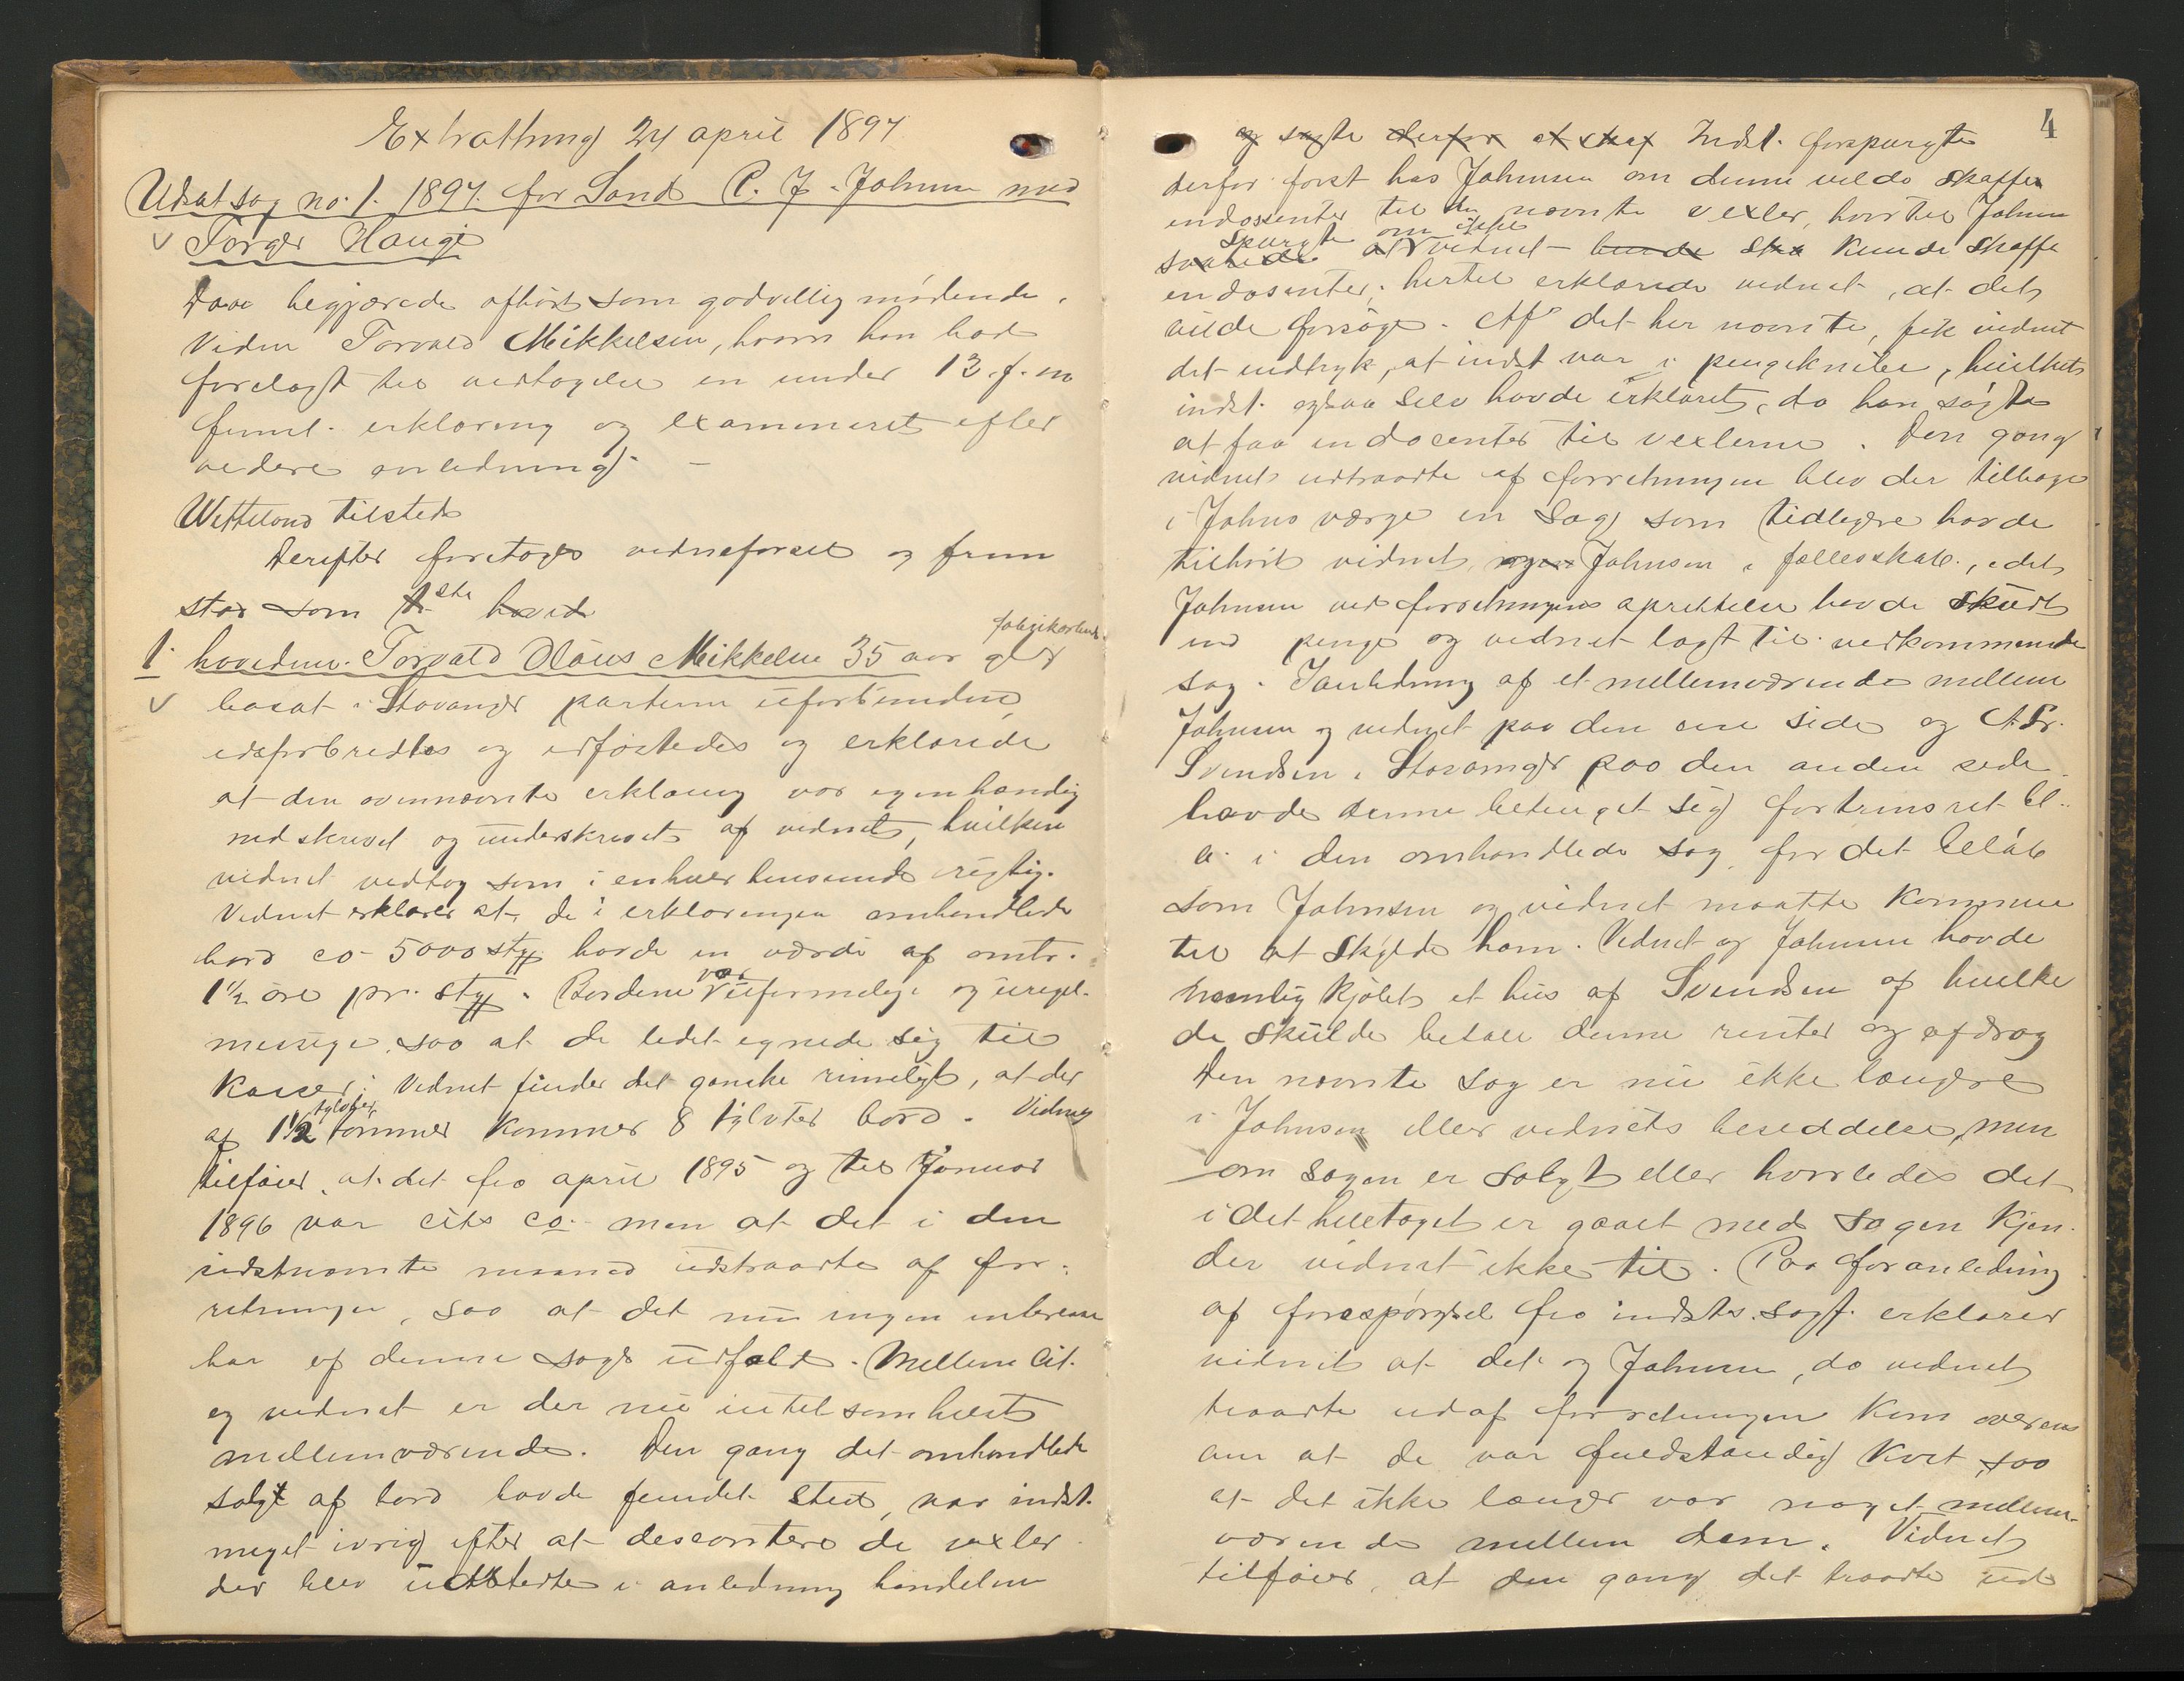 Extrathing 24 april 1897
Udsat sag no. 1. 1897. for Sand C. J. Johnsen mod
Torger Hauge
begjærede afhørt som godvillig mødende,
Vidne Torvald Mikkelsen, hvem han had
forelagt til vedtagelse en under 13. f. m
erklæring og examineret efter
videre anledning. -
Wetteland tilstede
Derefter foretoges vidneforsel og frem
stod som 1ste hovedv
1. hovedvne. Torvald Olaus Mikkelsen 35 aar gl fabrikarbeid.
bosat i Stavanger parterne uforbunden,
edsforbredtes og edfæstedes og erklærede
at den ovennævnte erklæring var egenhændig
nedskrevet og underskrevet af vidnet, hvilken
vidnet vedtog som i enhver henseende rigtig.
Vidnet erklærer at de i erklæringen omhandlede
bord ca 5000 styk havde en værdi af omtr.
1 1/2 øre pr. styk. Bordene var uformelige og uregel-
messige, saa at de ledet egnede sig til
kasser. Vidnet finder det ganske rimeligt, at der
af 1 1/2 tylvter tømmer kommer 8 tylvter bord. Vidnet
tilføier, at det fra april 1895 og til Januar
1896 var cits co. men at det i den
sidstnævnte maaned udtraadte af for-
retningen, saa at det nu ingen interesse
har af denne sags udfald. Mellem Cit.
og vidnet er der nu intetsomhelst
mellemværende. Den gang det omhandlede
salgt af bord havde fundet sted, var indst.
meget ivrig efter at descontere de vexler
der blev udstedte i anledning handelen
4
og søgte derfor at skaf Indst. forspurgte
derfor først hos Johnsen om denne vilde skaffe
endossenter til de nævnte vexler, hvortil Johnsen
svarede spurgte at om ikke vidnet kunde ska kunde skaffe
endosenter; hertil erklærede vidnet, at det
vilde forsøge. Af det her nævnte, fik vidnet
det indtryk, at indst var i pengeknibe, hvilket
indst. ogsaa selv havde erklæret, da han søgte
at faa endocenter til vexlerne. Den gang
vidnet udtraadte af forretningen blev der tilbage
i Johns værge en Sag som tidligere havde
tilhørt vidnet og Johnsen i fællesskab, idet
Johnsen ved forretningens oprettelse havde skudt
ind penge og vidnet lagt til vedkommende
sag. I anledning af et mellemværende mellem
Johnsen og vidnet paa den ene side og
Svendsen i Stavanger paa den anden side
havde denne betinget sig fortrinsret bl.
a. i den omhandlede sag for det beløb
som Johnsen og vidnet maatte komme
til at skylde ham. Vidnet og Johnsen havde
nemlig kjøbt et hus af Svendsen af hvilke
de skulde betale denne renter og afdrag
Den nævnte sag er nu ikke længere
i Johnsen eller vidnets besiddelse, men
om sagen er solgt eller hvorledes det
i det heletaget er gaaet med sagen kjen-
der vidnet ikke til. Paa foranledning
af forespørgsel fra indsts. sagf. erklærer
vidnet at det og Johnsen, da vidnet
traadte ud af forretningen kom overens
om at de var fuldstændig kvit, saa
at det ikke længer var noget mellem-
værende mellem dem. Vidnet
tilføier, at den gang det traadte ud